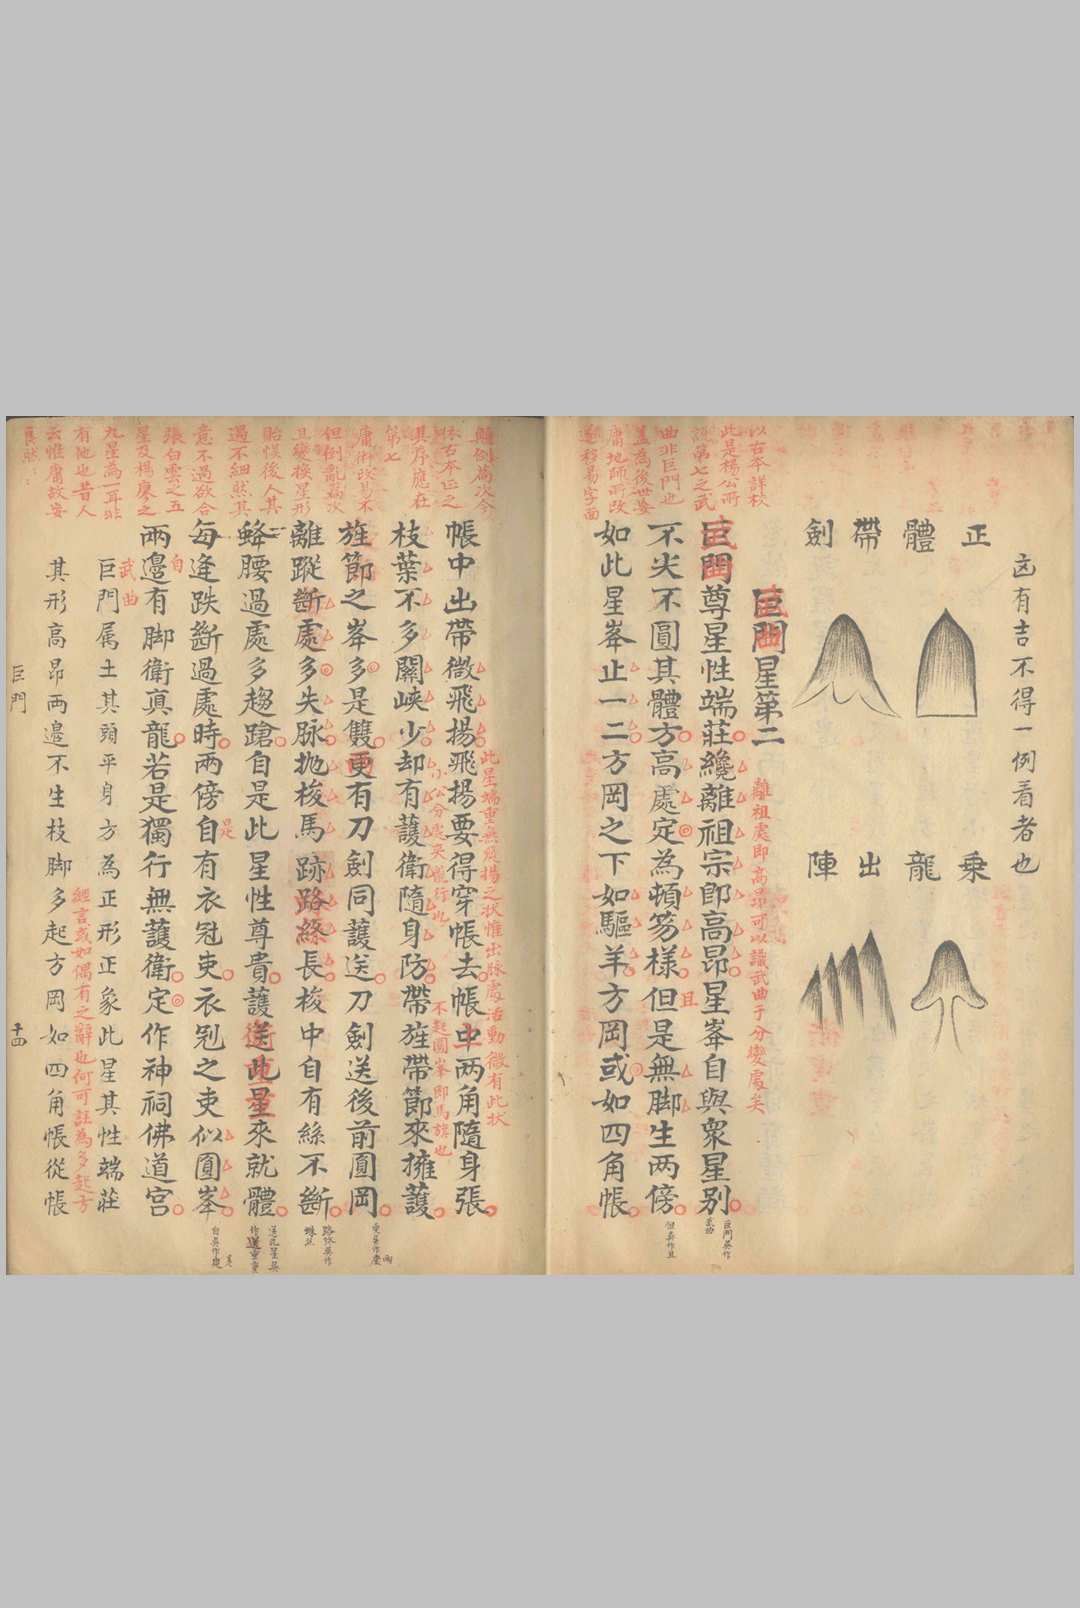 凶有吉不得一例看者也
正體帶劍
乗龍出陣
巨門星第二
離祖處即高昂可以識武曲于分變處矣
巨門尊星性端莊纔離祖宗即高昂星峯自與衆星别
不尖不圓其體方高處定為頓笏様但是無脚生两傍
如此星峯止一二方岡之下如驅羊方岡或如四角帳
以古本詳校
此是楊公所
謂第七之武
曲非巨門也
盖為後世妄
庸地師所改
巨門吳作
武曲
但吳作且
帳中出帶微飛揚飛揚要得穿帳去帳中两角隨身張
枝葉不多關峽少却有護衛隨身防帶旌帶節來擁護
旌節之峯多是雙更有刀劍同護送刀劍送後前圓岡
離蹤斷處多失脉抛梭馬跡路絲長梭中自有絲不斷
蜂腰過處多趨蹌自是此星性尊貴護送此星來就體
每逢跌斷過處時两傍自有衣冠吏衣冠之吏似圓峯
兩邉有脚衛真龍若是獨行無護衛定作神祠佛道宫
巨門属土其頭平身方為正形正象此星其性端莊
其形高昂两邉不生枝脚多起方岡如四角帳從帳
此星端重無飛揚之状惟出脉處活動微有此状
不起圓峯即馬旗也
經言或如偶有之辭也何可註為多起方
武曲
顛倒篇次今
依古本正之
其序應在
第七
庸術改易不
但倒亂篇次
且變换星形
貽悞後人其
過不細然其
意不過欲合
張白雲之五
星及楊廖之
九星為一耳非
有他也昔人
云惟庸故妄
良然
巨門
十四